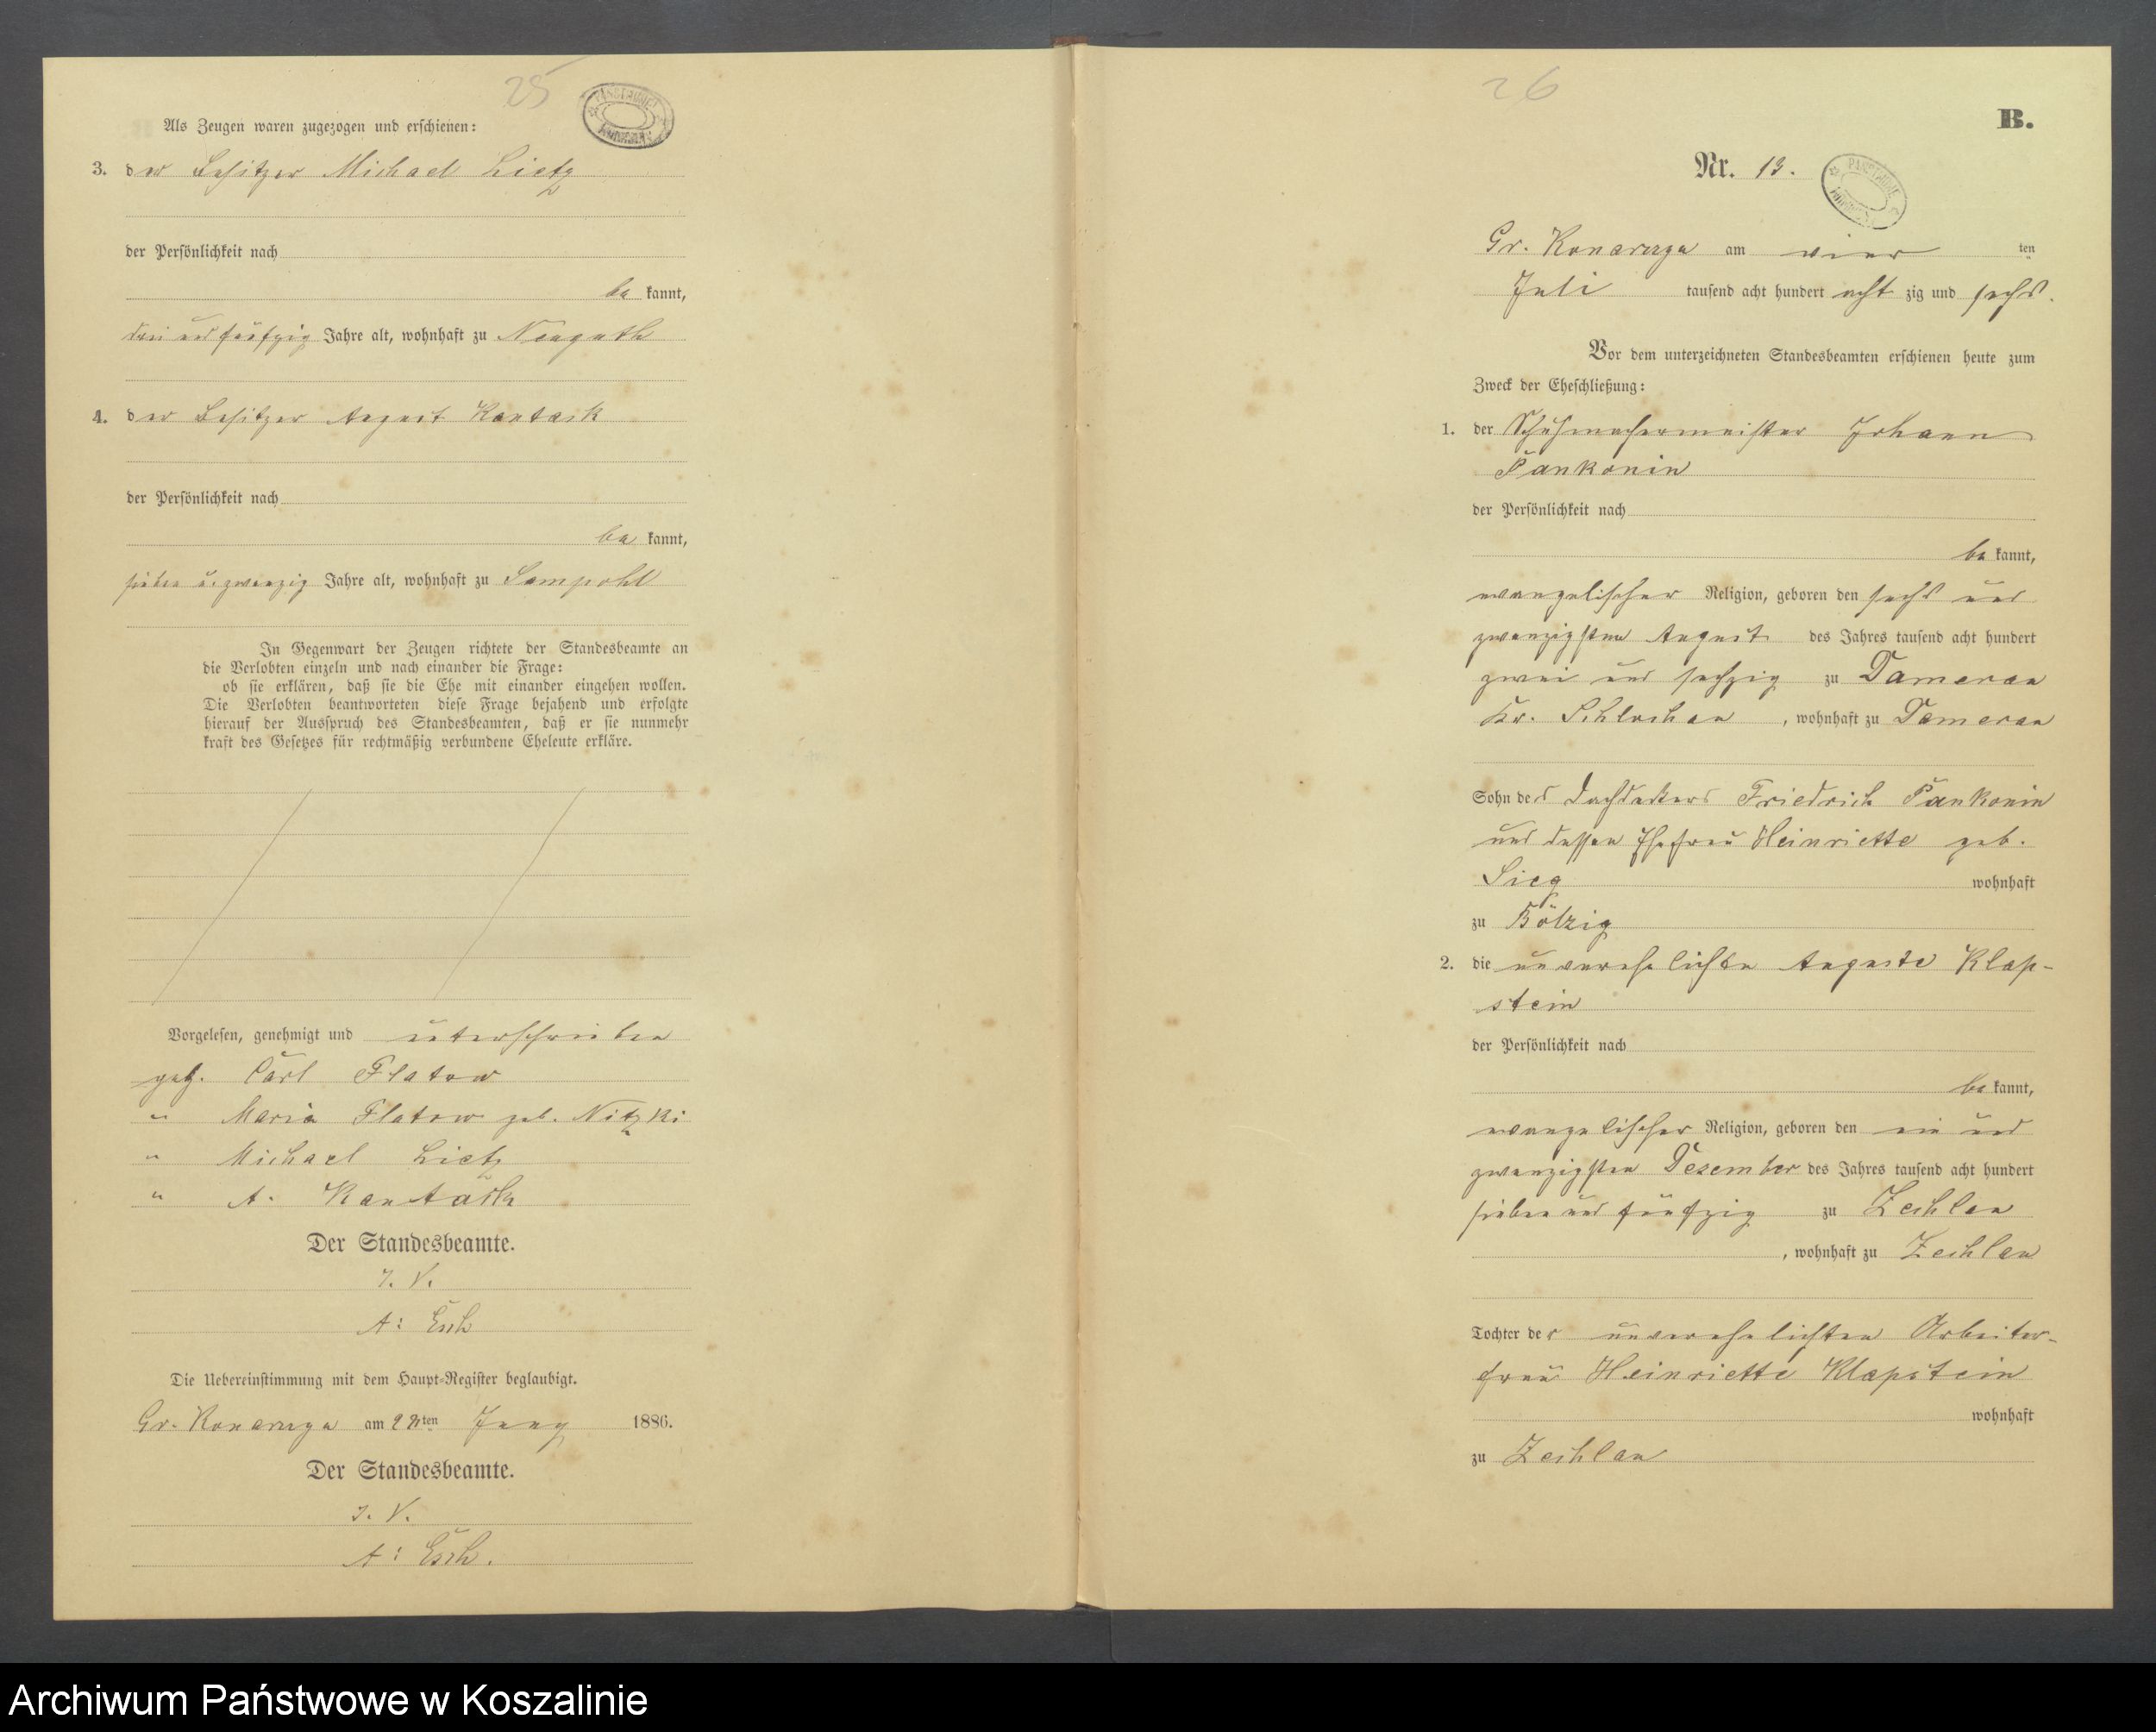 25
Als Zeugen waren zugezogen und erschienen:
3. der Besitzer Michael Lietz
der Persönlichkeit nach
be kannt,
drei und fünfzig Jahre alt, wohnhaft zu Neuguth
4. der Besitzer August Kantack
der Persönlichkeit nach
be kannt,
sieben u. zwanzig Jahre alt, wohnhaft zu Sampohl
In Gegenwart der Zeugen richtete der Standesbeamte an
die Verlobten einzeln und nach einander die Frage:
ob sie erklären, daß sie die Ehe mit einander eingehen wollen.
Die Verlobten beantworteten diese Frage bejahend und erfolgte
hierauf der Ausspruch des Standesbeamten, daß er sie nunmehr
kraft des Gesetzes für rechtmäßig verbundene Eheleute erkläre.
Vorgelesen, genehmigt und unterschrieben
gez. Carl Flatow
" Maria Flatow geb. Nitzki
" Michael Lietz
" A. Kantack
Der Standesbeamte.
I. V.
A:
Die Uebereinstimmung mit dem Haupt-Register beglaubigt.
Gr. Konarczyn am ten Juny 1886.
Der Standesbeamte.
I. V.
A:
26
B.
Nr. 13.
Gr. Konarczyn am vier ten
Juli tausend acht hundert acht zig und sechs.
Vor dem unterzeichneten Standesbeamten erschienen heute zum
Zweck der Eheschließung:
1. der Schuhmachermeister Johann
Pankonin
der Persönlichkeit nach
be kannt,
evangelischer Religion, geboren den sechs und
zwanzigsten August des Jahres tausend acht hundert
zwei und sechzig zu Damerau
Kr. Schlochau, wohnhaft zu Damerau
Sohn des Dachdeckers Friedrich Pankonin
und dessen Ehefrau Heinriette geb.
Sieg wohnhaft
zu Bölzig
2. die unverehelichte Auguste Klap-
stein
der Persönlichkeit nach
be kannt,
evangelischer Religion, geboren den ein und
zwanzigsten Dezember des Jahres tausend acht hundert
sieben und fünfzig zu Zechlau
, wohnhaft zu Zechlau
Tochter der unverehelichten Arbeiter-
frau Heinriette Klapstein
wohnhaft
zu Zechlau
Archiwum Państwowe w Koszalinie